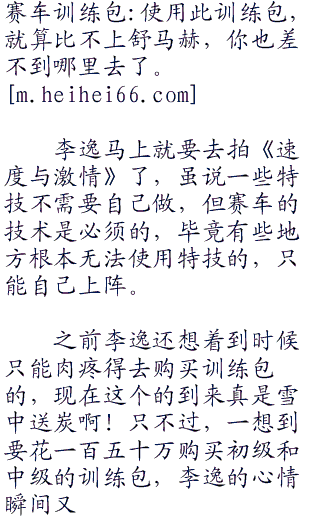 赛车训练包:使用此训练包，
就算比不上舒马赫，你也差
不到哪里去了。
[m.heihei66.com]
李逸马上就要去拍《速
度与激情》了，虽说一些特
技不需要自己做，但赛车的
技术是必须的，毕竟有些地
方根本无法使用特技的，只
能自己上阵。
之前李逸还想着到时候
只能肉疼得去购买训练包
的，现在这个的到来真是雪
中送炭啊！只不过，一想到
要花一百五十万购买初级和
中级的训练包，李逸的心情
瞬间又